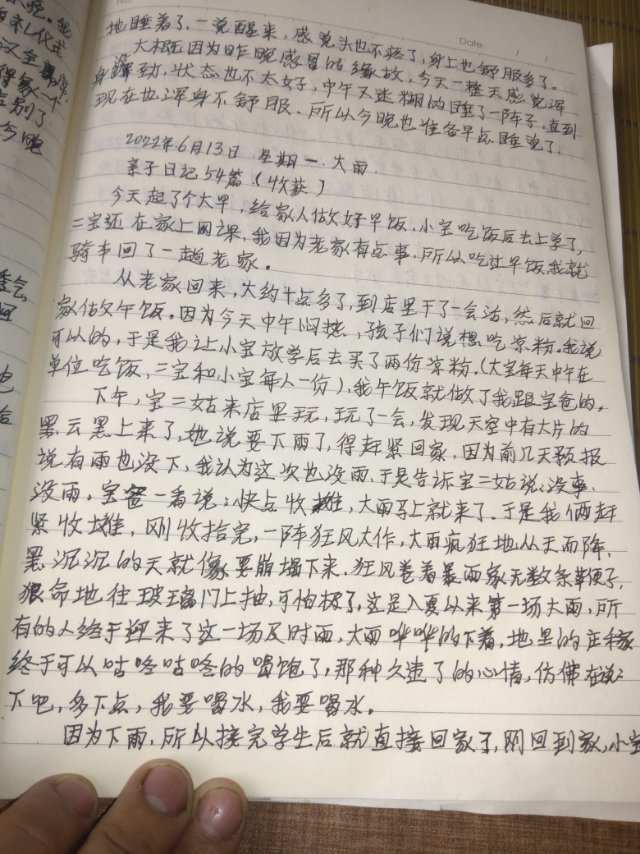 地睡着了,一觉醒来,感觉头也不疼了,身上也舒服多了。
Date: / /
大概因为昨晚感冒的缘故,今天一整天感觉浑
身没劲,状态也不太好,中午又迷糊的睡了一阵子,直到
现在也浑身不舒服。所以今晚也准备早点睡觉了。
2022年6月13日 星期一 大雨
亲子日记54篇(收获)
今天起了个大早,给家人做好早饭,小宝吃饭后去上学了,
三宝还在家上网课,我因为老家有点事,所以吃过早饭我就
骑车回了一趟老家。
从老家回来,大约十点多了,到店里干了一会活,然后就回
家做午饭。因为今天中午闷热,孩子们说想吃凉粉。我说
可以的,于是我让小宝放学后去买了两份凉粉。(大宝每天中午在
单位吃饭,三宝和小宝每人一份),我午饭就做了我跟宝爸的。
下午,宝三姑来店里玩,玩了一会,发现天空中有大片的
黑云黑上来了,她说要下雨了,得赶紧回家,因为前几天预报
说有雨也没下,我认为这次也没雨,于是告诉宝三姑说:没事,
没雨。宝爸一看说:快点收摊,大雨马上就来了。于是我俩赶
紧收摊,刚收拾完,一阵狂风大作,大雨疯狂地从天而降,
黑沉沉的天就像要崩塌下来,狂风卷着暴雨象无数条鞭子,
狠命地往玻璃门上抽,可怕极了,这是入夏以来第一场大雨,所
有的人终于迎来了这一场及时雨,大雨哗哗的下着,地里的庄稼
终于可以咕咚咕咚的喝饱了,那种久违了的心情,仿佛在说:
下吧,多下点,我要喝水,我要喝水。
因为下雨,所以接完学生后就直接回家了,刚回到家,小宝